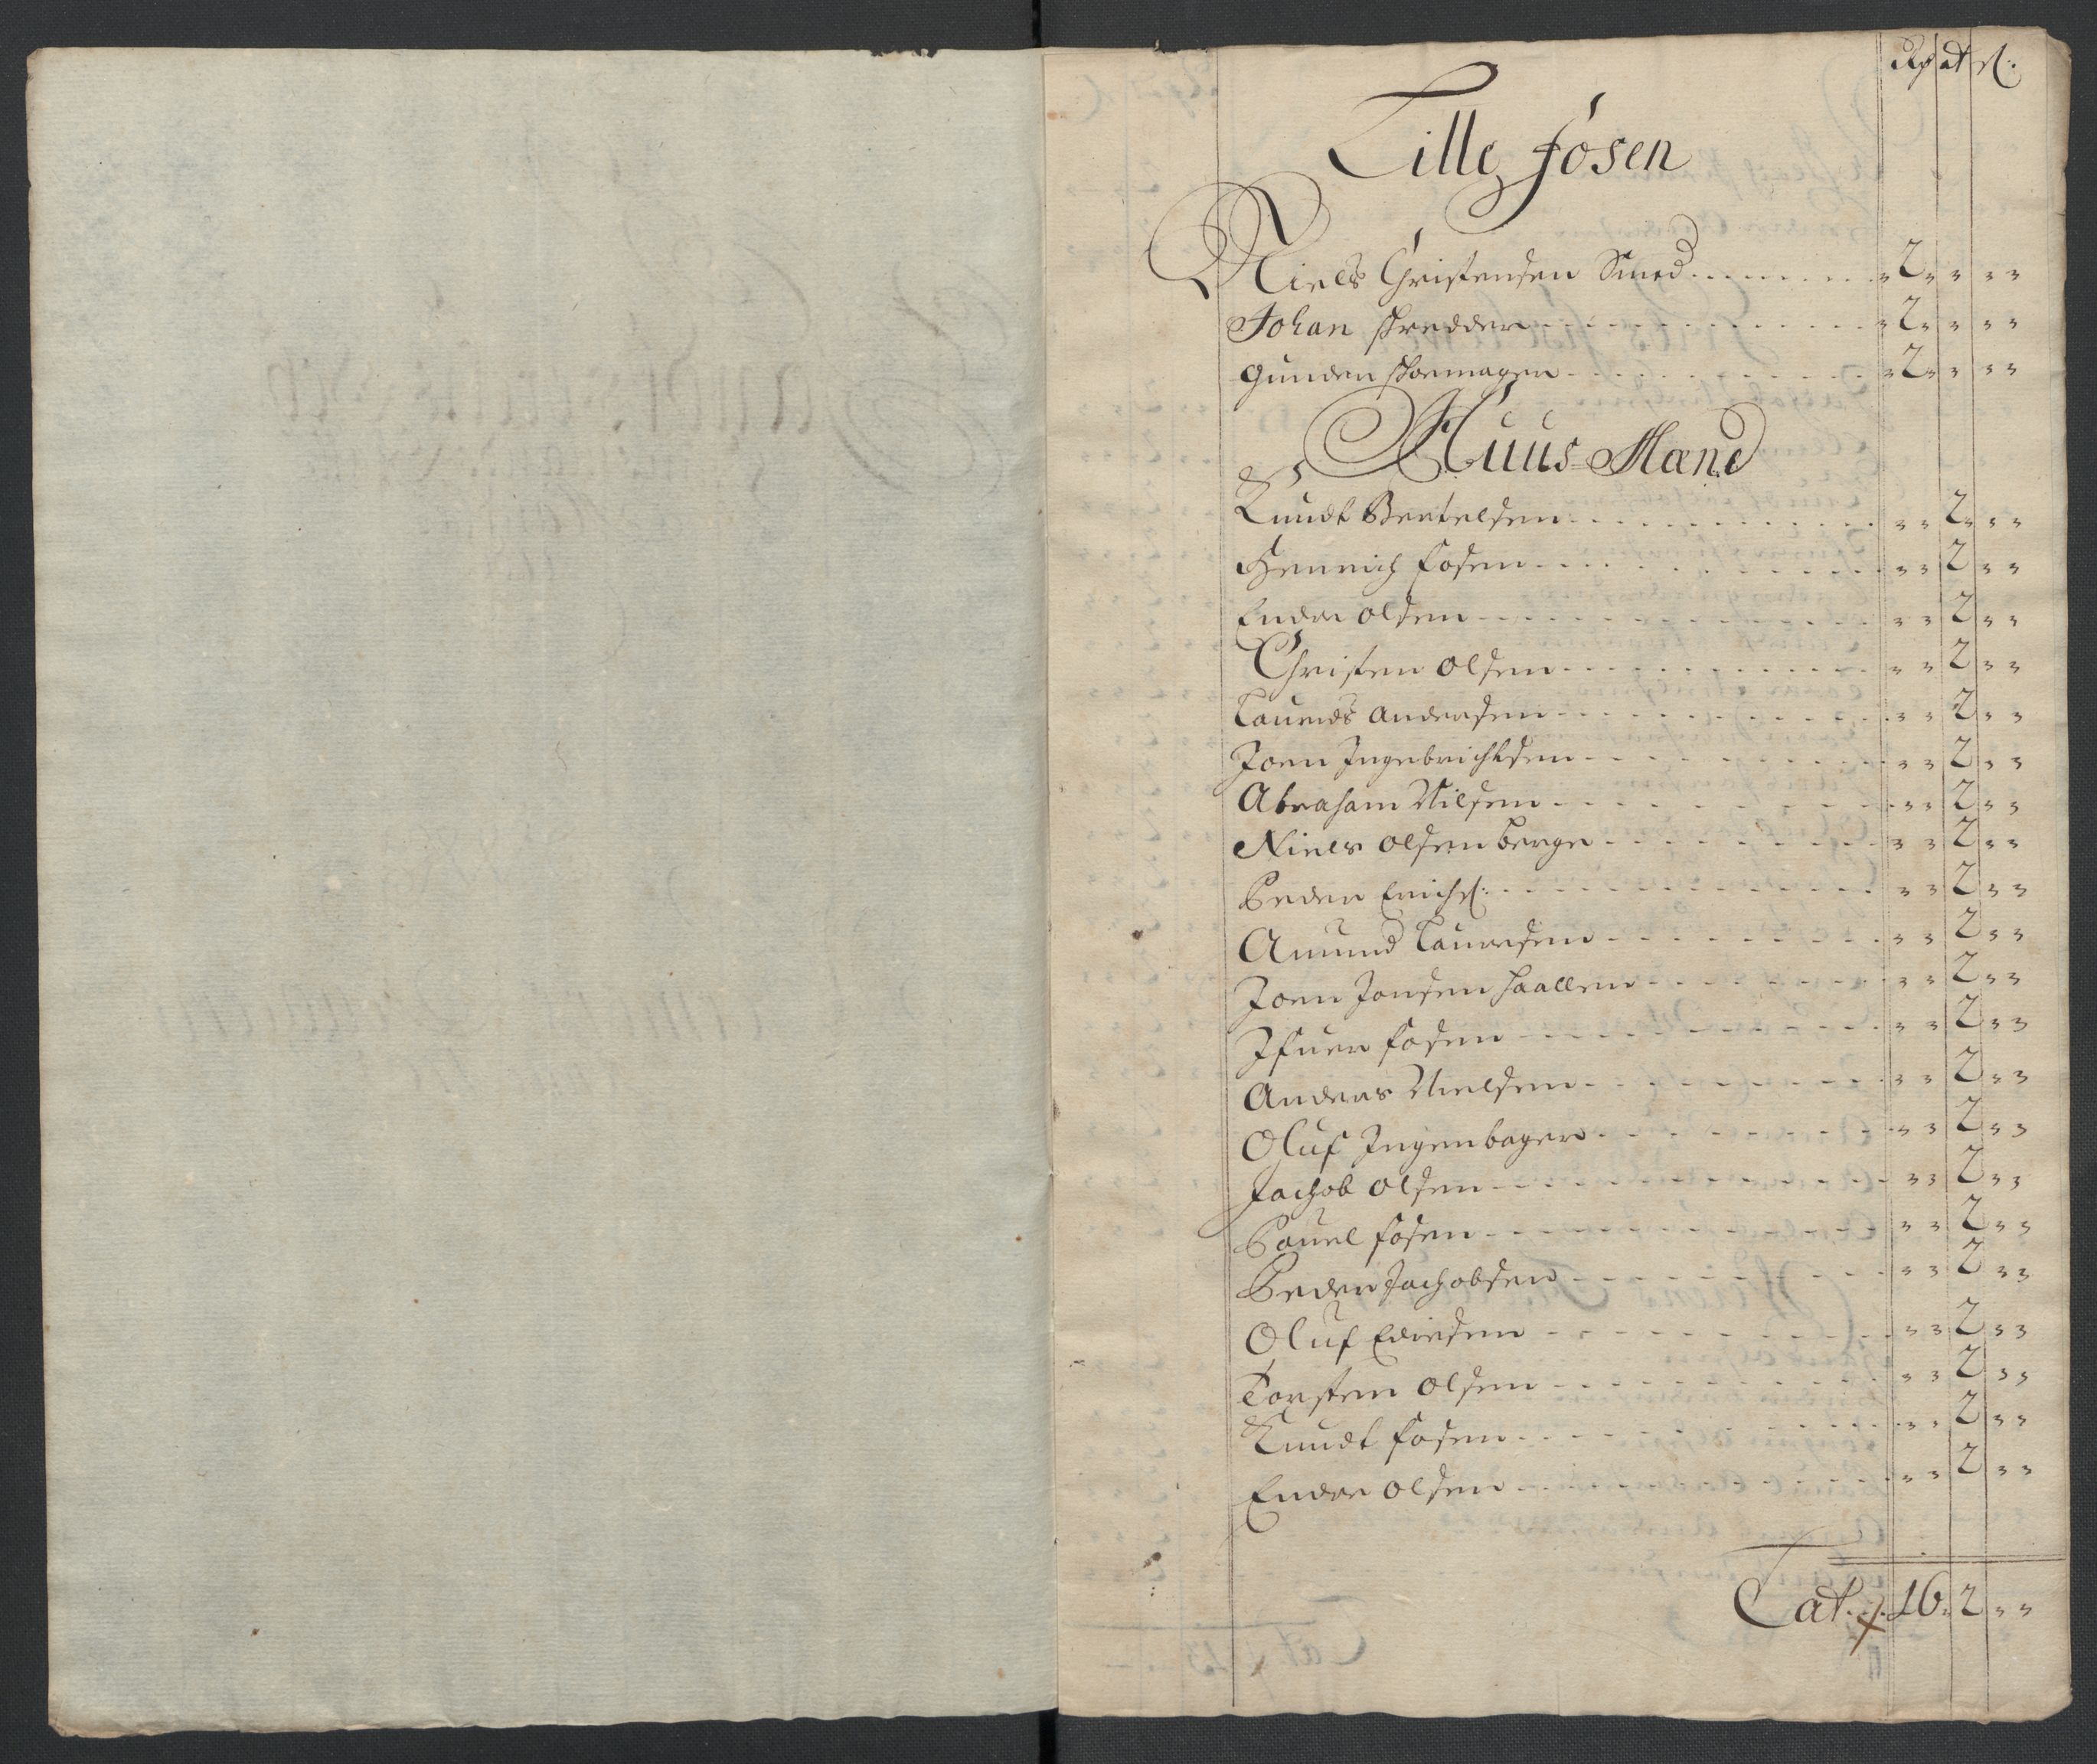 Rdr ort ß:
Lille Fosen
Niels Christensen Smed - - - 2 " " " "
Johan skredder - - - 2 " " " "
Gunder skomager - - - 2 " " " "
Huus-Mænd
Knudt Bertelsen - - - " " 2 " "
Henrich Fosen - - - " " 2 " "
Endre Olsen - - - " " 2 " "
Christen Olsen - - - " " 2 " "
Laurids Andersen - - - " " 2 " "
Joen Ingebrichtsen - - - " " 2 " "
Abraham Nilsen - - - " " 2 " "
Niels Olsen Berge - - - " " 2 " "
Peder Erichß: - - - " " 2 " "
Amund Laursen - - - " " 2 " "
Joen Jonsen Haallen - - - " " 2 " "
Ifuer Fosen - - - " " 2 " "
Anders Nielsen - - - " " 2 " "
Oluf Ingenbager - - - " " 2 " "
Jachob Olsen - - - " " 2 " "
Pouel Fosen - - - " " 2 " "
Peder Jachobsen - - - " " 2 " "
Oluf - - - " " 2 " "
Torsten Olsen - - - " " 2 " "
Knudt Fosen - - - " " 2 " "
Endre Olsen - - - " " 2 " "
Lat. 16 " 2 " "